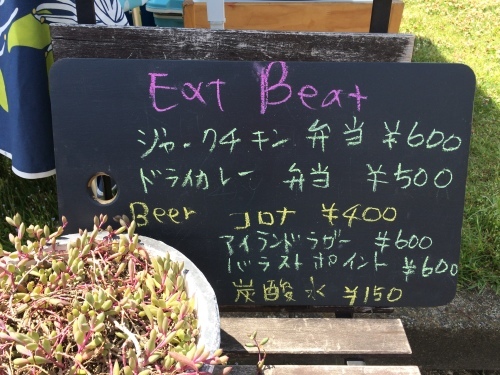 Eat Beat
ジャークチキン 弁当 ¥600
ドライカレー 弁当 ¥500
Beer コロナ ¥400
アイランドラガー ¥600
バラストポイント ¥600
炭酸水 ¥150